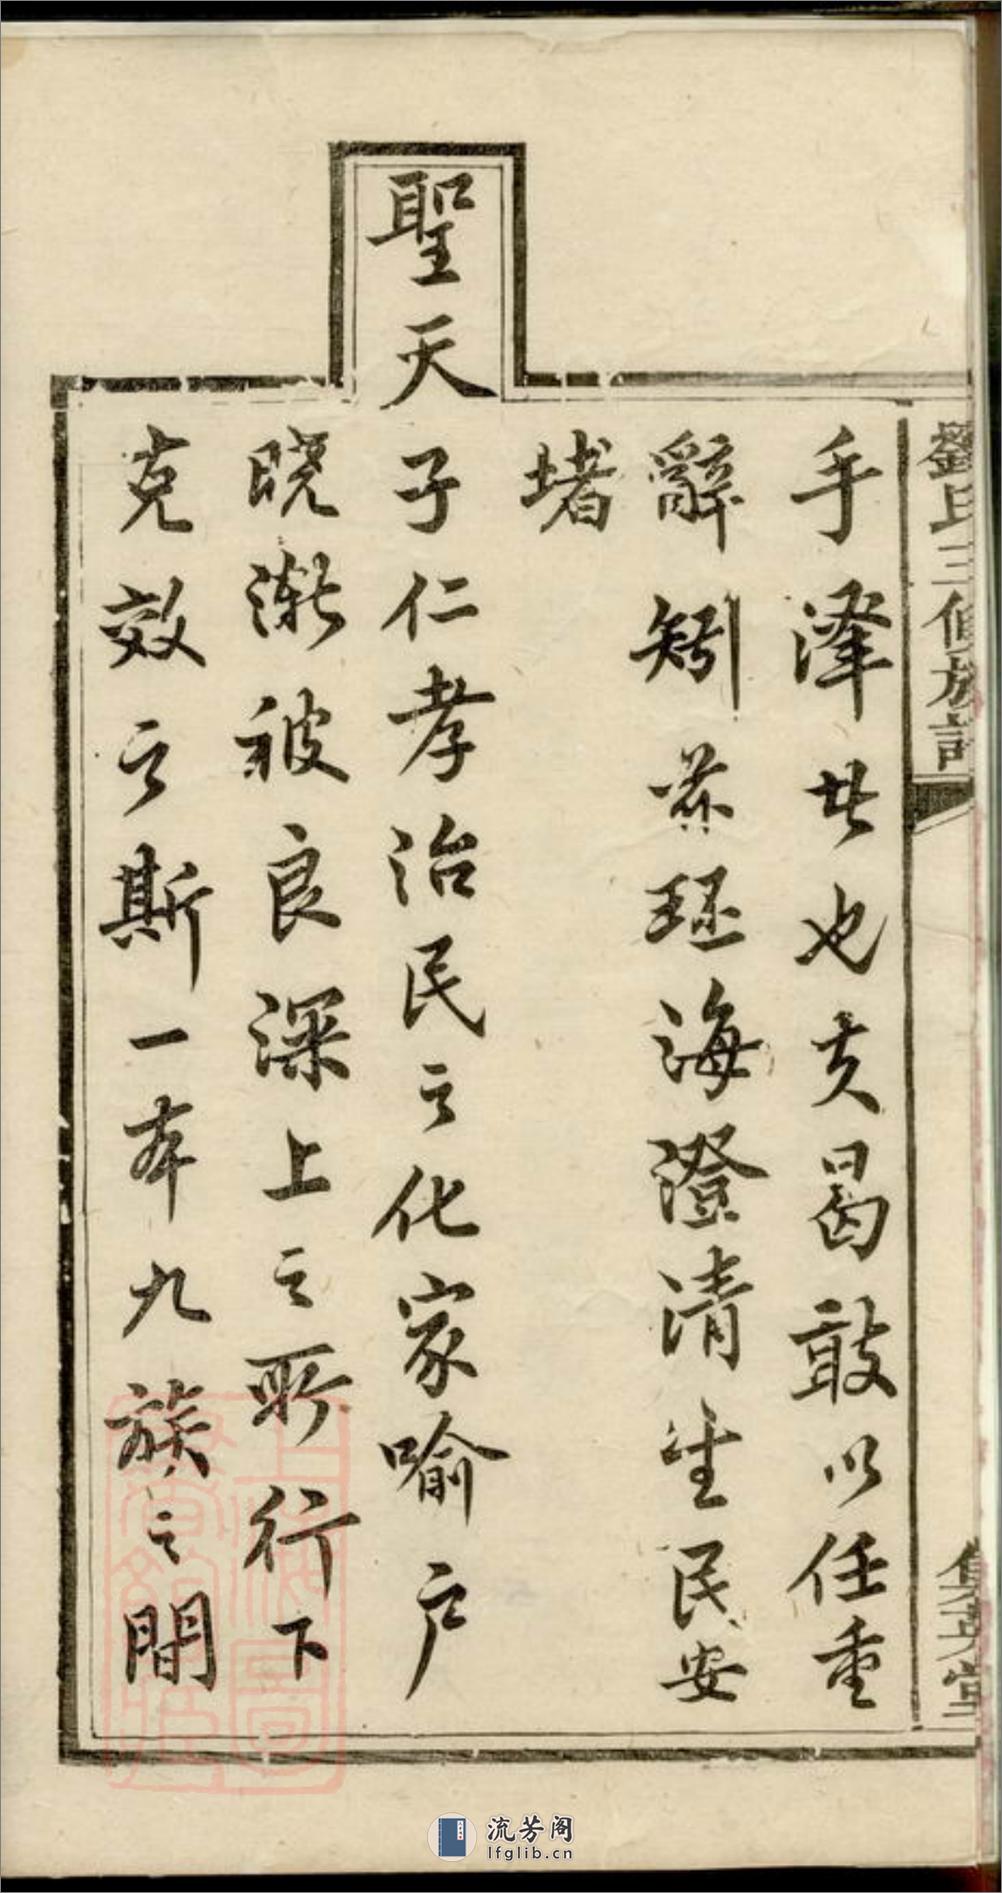 劉氏三修族譜
手澤廿也夫曷敢以任重
辭矧茲環海澄清生民安
堵
聖天子仁孝治民之化家喻户
晓漸被良深上之所行下
克效之斯一本九族之間
上海圖書館藏
流芳阁
lfglib.cn